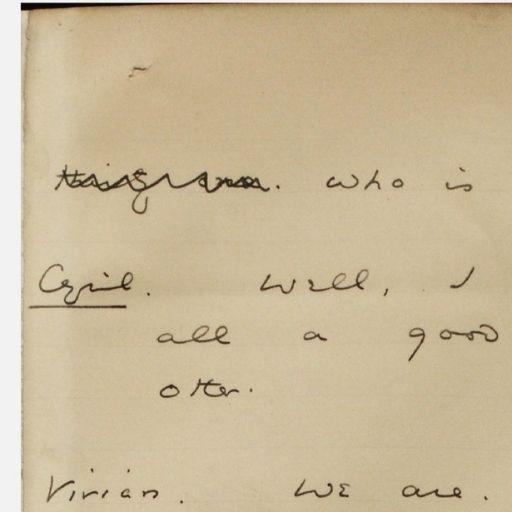 who is
Cyril. Well, I
all a good
other.
Vivian. We are.